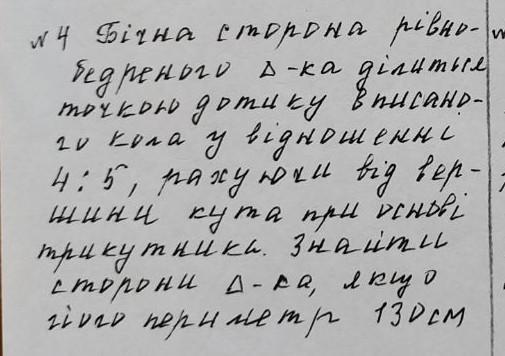 №4 Бічна сторона рівно-
бедреного Δ-ка ділиться
точкою дотику вписано-
го кола у відношенні
4:5, рахуючи від вер-
шини кута при основі
трикутника. Знайти
сторони Δ-ка, якщо
його периметр 130см